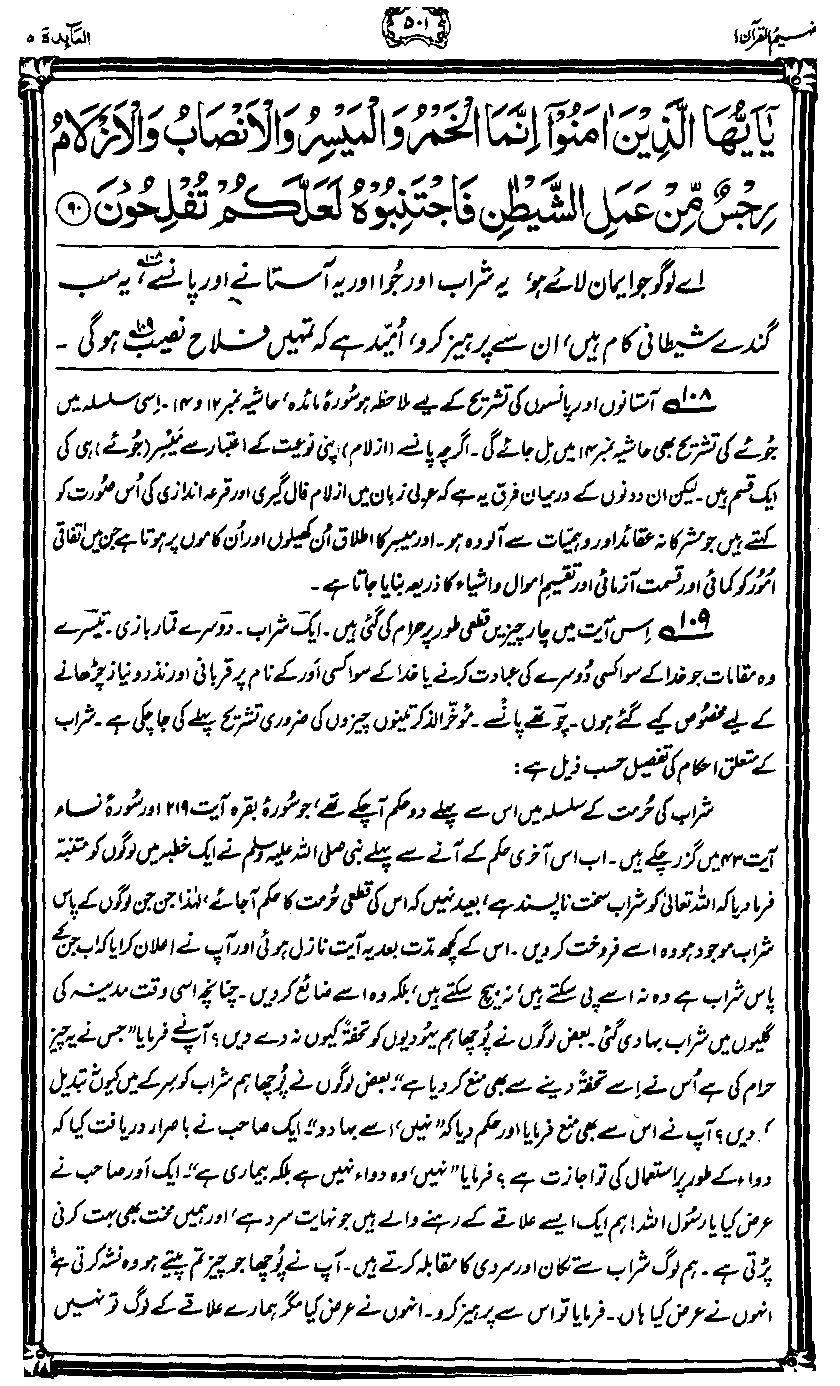 تفہیم القرآن ۱
۵۰۱
المآئدۃ ۵
يٰۤاَيُّهَا الَّذِيْنَ اٰمَنُوْۤا اِنَّمَا الْخَمْرُ وَالْمَيْسِرُ وَالْاَنْصَابُ وَالْاَزْلَامُ
رِجْسٌ مِّنْ عَمَلِ الشَّيْطٰنِ فَاجْتَنِبُوْهُ لَعَلَّكُمْ تُفْلِحُوْنَ ﴿۹۰﴾
اے لوگو جو ایمان لائے ہو، یہ شراب اور جُوا اور یہ آستانے اور پانسے،۱۰۸ یہ سب
گندے شیطانی کام ہیں، ان سے پرہیز کرو، اُمید ہے کہ تمہیں فلاح نصیب ہوگی۱۰۹ ۔
۱۰۸ آستانوں اور پانسوں کی تشریح کے لیے ملاحظہ ہو سُورۂ مائدہ، حاشیہ نمبر ۱۲ و ۱۴۔ اِسی سلسلہ میں
جُوئے کی تشریح بھی حاشیہ نمبر ۱۴ میں مل جائے گی۔ اگرچہ پانسے (ازلام) اپنی نوعیت کے اعتبار سے مَیْسِر (جُوئے) ہی کی
ایک قسم ہیں۔ لیکن ان دونوں کے درمیان فرق یہ ہے کہ عربی زبان میں ازلام فال گیری اور قرعہ اندازی کی اُس صُورت کو
کہتے ہیں جو مشرکانہ عقائد اور وہمیات سے آلودہ ہو۔ اور میسر کا اطلاق اُن کھیلوں اور اُن کاموں پر ہوتا ہے جن میں اتفاقی
امُور کو کمائی اور قسمت آزمائی اور تقسیمِ اموال و اشیاء کا ذریعہ بنایا جاتا ہے۔
۱۰۹ اِس آیت میں چار چیزیں قطعی طور پر حرام کی گئی ہیں۔ ایک شراب۔ دوسرے قمار بازی۔ تیسرے
وہ مقامات جو خدا کے سوا کسی دُوسرے کی عبادت کرنے یا خدا کے سوا کسی اَور کے نام پر قربانی اور نذر و نیاز چڑھانے
کے لیے مخصُوص کیے گئے ہوں۔ چوتھے پانسے۔ مؤخّر الذکر تینوں چیزوں کی ضروری تشریح پہلے کی جا چکی ہے۔ شراب
کے متعلق احکام کی تفصیل حسب ذیل ہے :
شراب کی حُرمت کے سلسلہ میں اس سے پہلے دو حکم آ چکے تھے، جو سُورۂ بقرہ آیت ۲۱۹ اور سُورۂ نساء
آیت ۴۳ میں گزر چکے ہیں۔ اب اس آخری حکم کے آنے سے پہلے نبی صلی اللہ علیہ وسلم نے ایک خطبہ میں لوگوں کو متنبّہ
فرما دیا کہ اللہ تعالیٰ کو شراب سخت ناپسند ہے، بعید نہیں کہ اس کی قطعی حُرمت کا حکم آجائے، لہٰذا جن جن لوگوں کے پاس
شراب موجود ہو وہ اسے فروخت کر دیں۔ اس کے کچھ مدّت بعد یہ آیت نازل ہوئی اور آپ نے اعلان کرایا کہ اب جن کے
پاس شراب ہے وہ نہ اسے پی سکتے ہیں، نہ بیچ سکتے ہیں، بلکہ وہ اسے ضائع کر دیں۔ چنانچہ اسی وقت مدینہ کی
گلیوں میں شراب بہا دی گئی۔ بعض لوگوں نے پُوچھا ہم یہُودیوں کو تحفۃً کیوں نہ دے دیں؟ آپ نے فرمایا ”جس نے یہ چیز
حرام کی ہے اُس نے اِسے تحفۃً دینے سے بھی منع کر دیا ہے“۔ بعض لوگوں نے پُوچھا ہم شراب کو سِرکے میں کیوں نہ تبدیل
کر دیں؟ آپ نے اس سے بھی منع فرمایا اور حکم دیا کہ ”نہیں، اسے بہا دو“۔ ایک صاحب نے باصرار دریافت کیا کہ
دواء کے طور پر استعمال کی تو اجازت ہے؟ فرمایا ”نہیں، وہ دواء نہیں ہے بلکہ بیماری ہے“۔ ایک اَور صاحب نے
عرض کیا یا رسُول اللہ! ہم ایک ایسے علاقے کے رہنے والے ہیں جو نہایت سرد ہے، اور ہمیں محنت بھی بہت کرنی
پڑتی ہے۔ ہم لوگ شراب سے تکان اور سردی کا مقابلہ کرتے ہیں۔ آپ نے پُوچھا جو چیز تم پیتے ہو وہ نشہ کرتی ہے؟
انہوں نے عرض کیا ہاں۔ فرمایا تو اس سے پرہیز کرو۔ انہوں نے عرض کیا مگر ہمارے علاقے کے لوگ تو نہیں